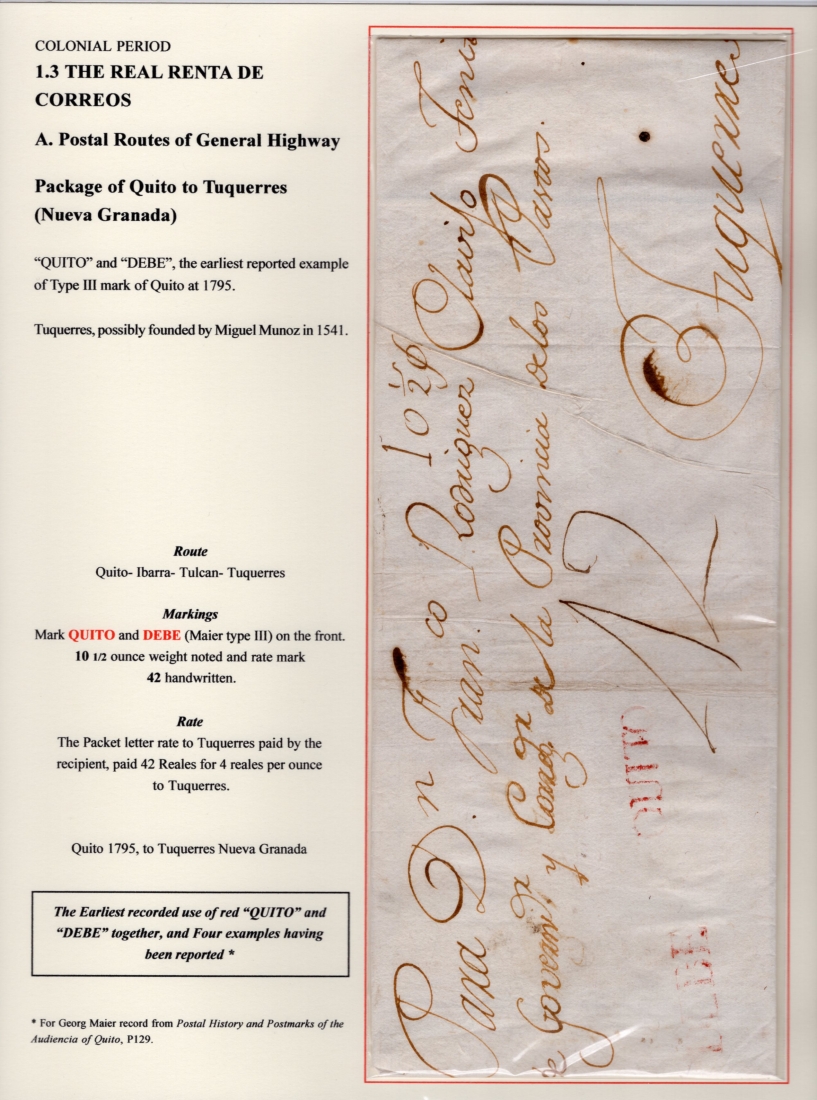 COLONIAL PERIOD
1.3 THE REAL RENTA DE
CORREOS
A. Postal Routes of General Highway
Package of Quito to Tuquerres
(Nueva Granada)
“QUITO” and “DEBE”, the earliest reported example
of Type III mark of Quito at 1795.
Tuquerres, possibly founded by Miguel Munoz in 1541.
Route
Quito- Ibarra- Tulcan- Tuquerres
Markings
Mark QUITO and DEBE (Maier type III) on the front.
10 1/2 ounce weight noted and rate mark
42 handwritten.
Rate
The Packet letter rate to Tuquerres paid by the
recipient, paid 42 Reales for 4 reales per ounce
to Tuquerres.
Quito 1795, to Tuquerres Nueva Granada
The Earliest recorded use of red “QUITO” and
“DEBE” together, and Four examples having
been reported *
* For Georg Maier record from Postal History and Postmarks of the
Audiencia of Quito, P129.
10 1/2
Para Dn Franco Rodriguez Clavijo
de la Provincia de los Pastos.
Tuquerres
42
QUITO
DEBE